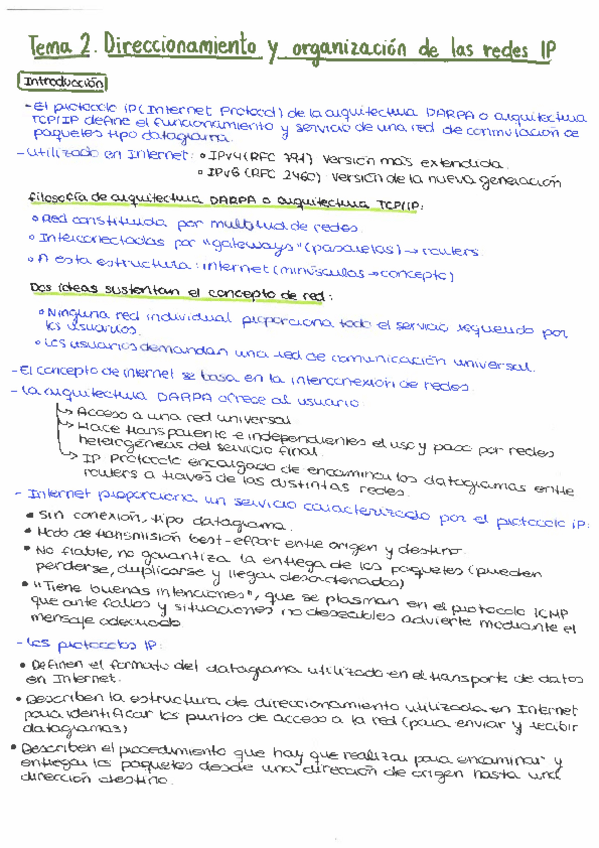 Tema 2. Direccionamiento y organización de las redes IP
Introducción
- El protocolo IP (Internet Protocol) de la arquitectura DARPA o arquitectura
TCP/IP define el funcionamiento y servicio de una red de conmutación de
paquetes tipo datagrama.
- Utilizado en Internet: • IPv4 (RFC 791) versión más extendida.
• IPv6 (RFC 2460) versión de la nueva generación
Filosofía de arquitectura DARPA o arquitectura TCP/IP:
• Red constituida por multitud de redes.
• Interconectadas por "gateways" (pasarelas) → routers.
• A esta estructura: internet (minúsculas → concepto)
Dos ideas sustentan el concepto de red:
• Ninguna red individual proporciona todo el servicio requerido por
los usuarios.
• Los usuarios demandan una red de comunicación universal.
- El concepto de internet se basa en la interconexión de redes.
- La arquitectura DARPA ofrece al usuario:
↳ Acceso a una red universal
↳ Hace transparente e independientes el uso y paso por redes
heterogéneas del servicio final.
↳ IP protocolo encargado de encaminar los datagramas entre
routers a través de las distintas redes.
- Internet proporciona un servicio caracterizado por el protocolo IP:
• Sin conexión, tipo datagrama.
• Modo de transmisión best-effort entre origen y destino.
• No fiable, no garantiza la entrega de los paquetes (pueden
perderse, duplicarse y llegar desordenados)
• "Tiene buenas intenciones", que se plasman en el protocolo ICMP
que ante fallos y situaciones no deseables advierte mediante el
mensaje adecuado.
- Los protocolos IP:
• Definen el formato del datagrama utilizado en el transporte de datos
en Internet.
• Describen la estructura de direccionamiento utilizada en Internet
para identificar los puntos de acceso a la red (para enviar y recibir
datagramas)
• Describen el procedimiento que hay que realizar para encaminar y
entregar los paquetes desde una dirección de origen hasta una
dirección destino.